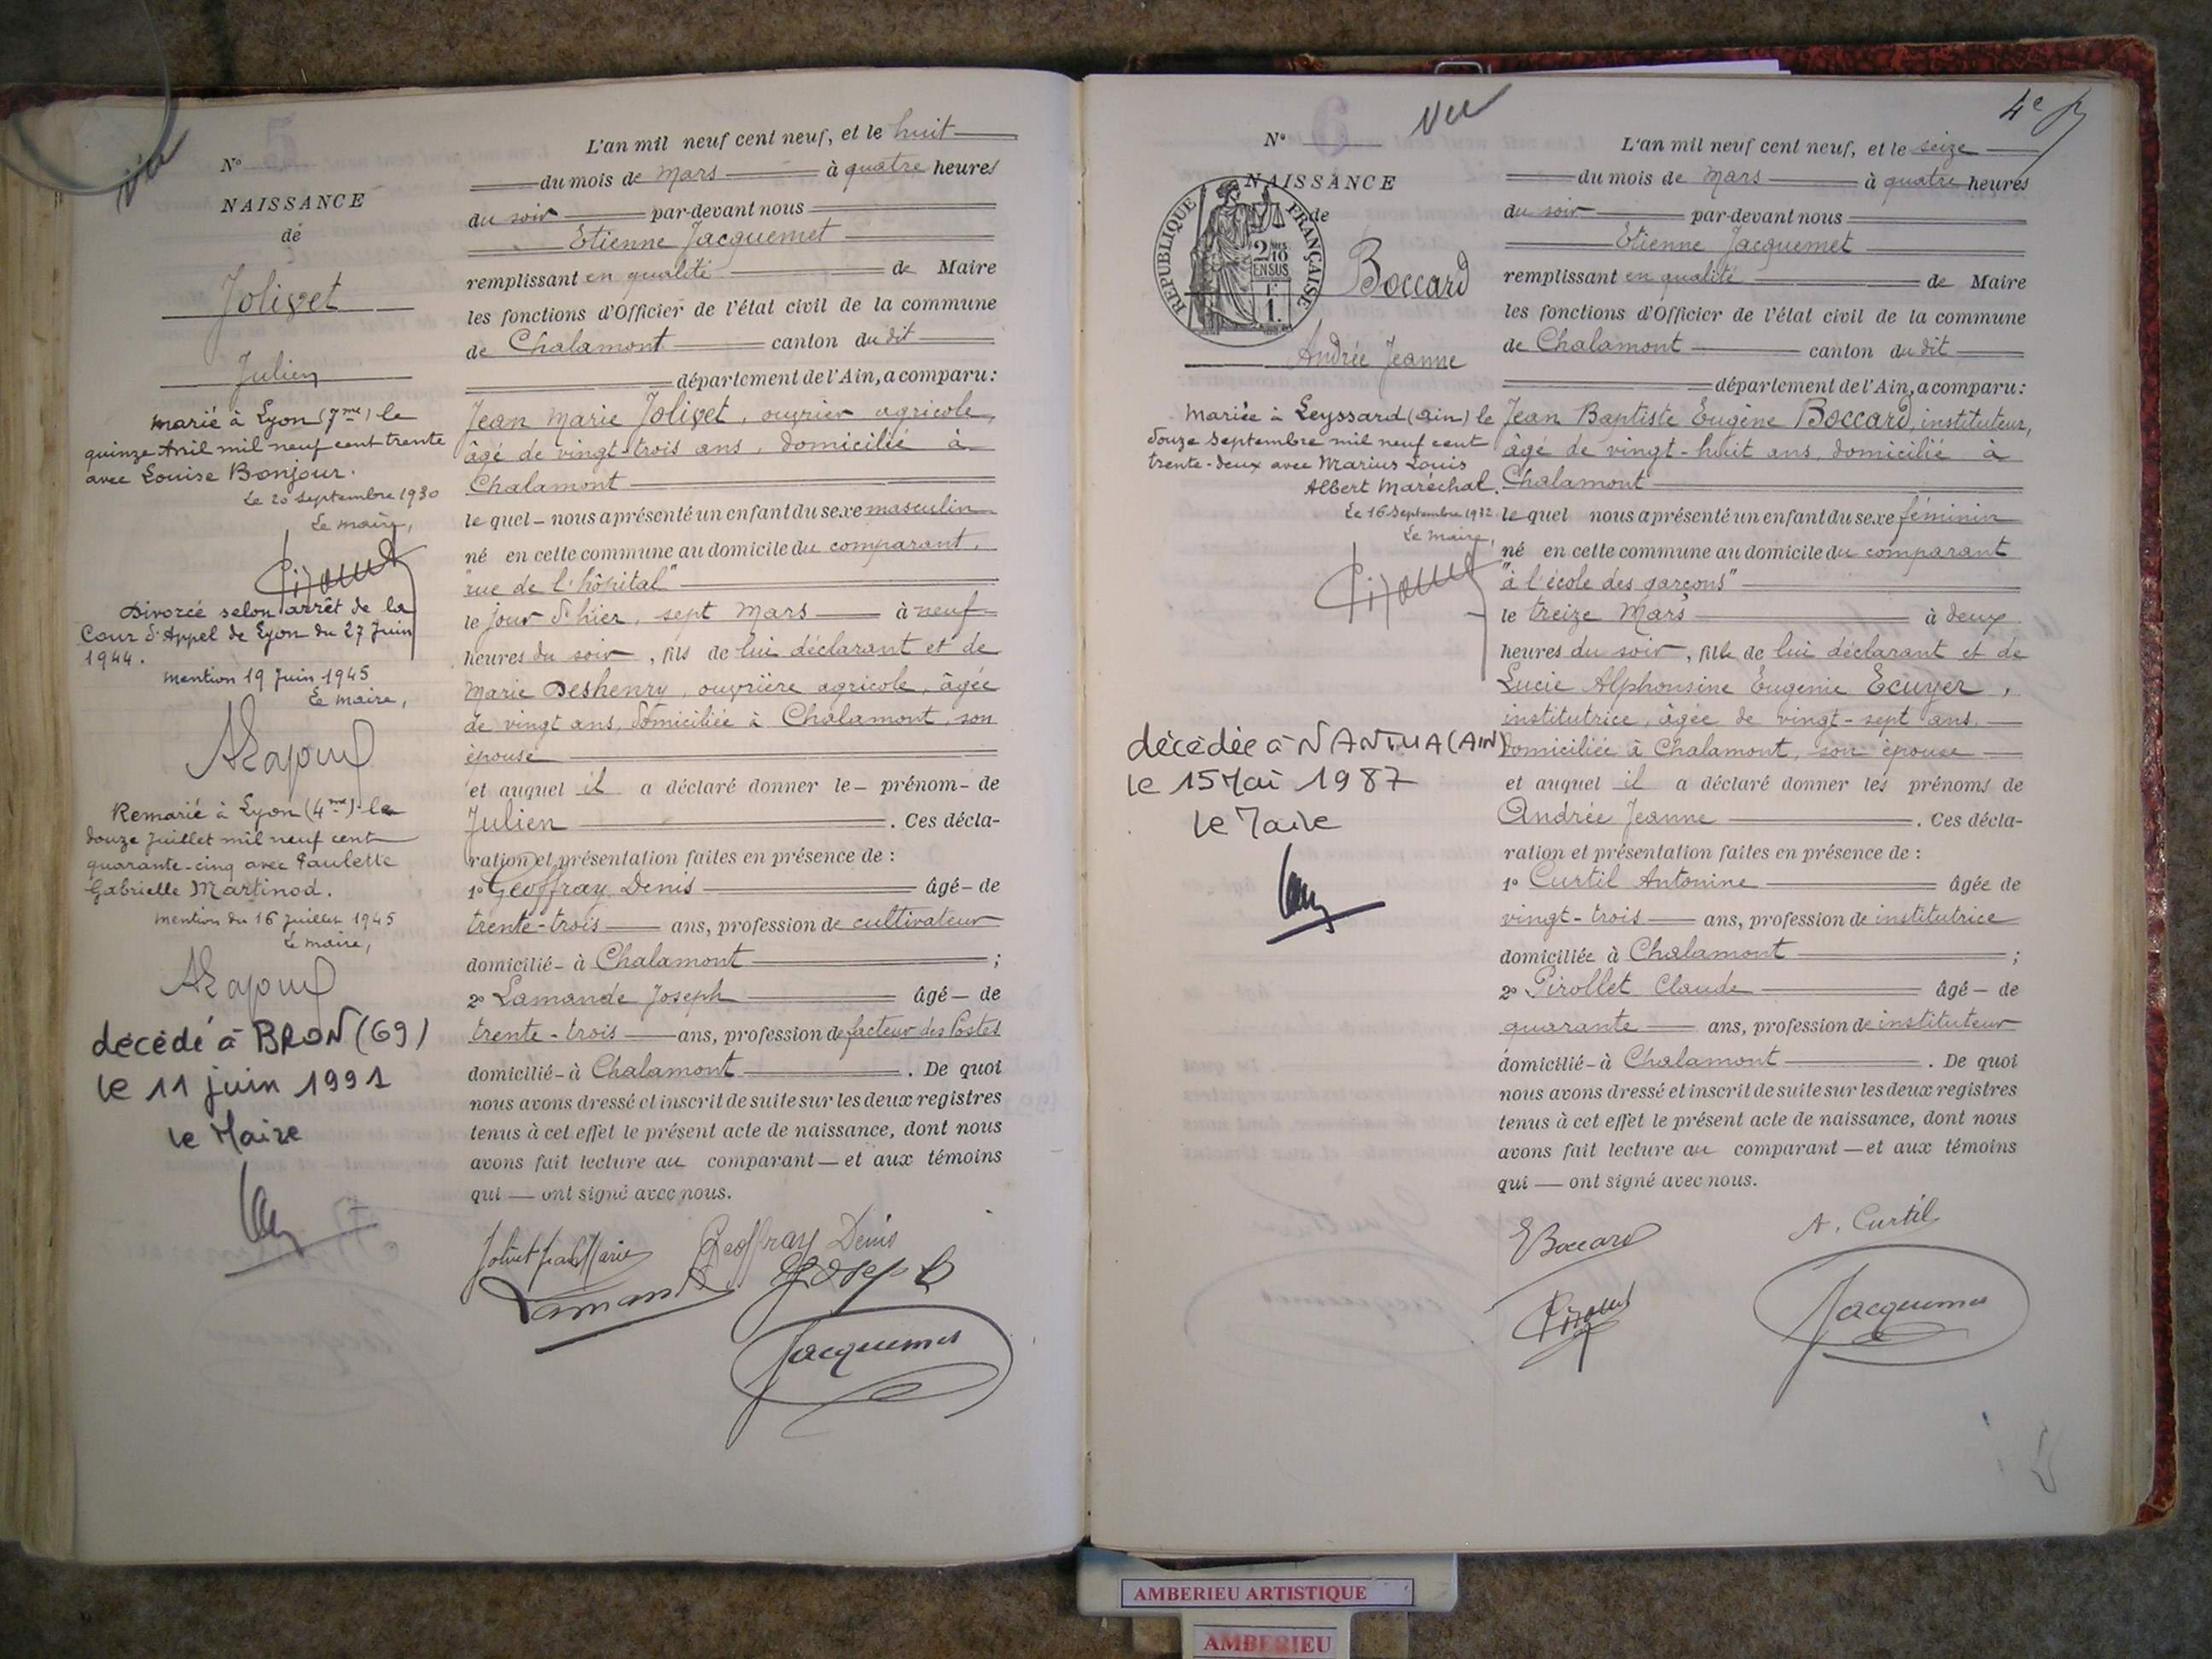 vu
N° 5
NAISSANCE
de
Jolivet
Julien
marié à Lyon (7me) le
quinze Avril mil neuf cent trente
avec Louise Bonjour.
Le 20 Septembre 1930
Le maire,
Divorcé selon arrêt de la
Cour d'Appel de Lyon du 27 Juin
1944.
mention 19 Juin 1945
Le maire,
Remarié à Lyon (4me) le
douze Juillet mil neuf cent
quarante-cinq avec Paulette
Gabrielle Martinod.
mention du 16 Juillet 1945
Le maire,
décédé à BRON (69)
le 11 juin 1991
le Maire
L'an mil neuf cent neuf, et le huit
du mois de Mars à quatre heures
du soir par-devant nous
Etienne Jacquemet
remplissant en qualité de Maire
les fonctions d'Officier de l'état civil de la commune
de Chalamont canton du dit
département de l'Ain, a comparu :
Jean Marie Jolivet, ouvrier agricole,
âgé de vingt-trois ans, domicilié à
Chalamont
le quel nous a présenté un enfant du sexe masculin
né en cette commune au domicile du comparant,
"rue de l'hôpital"
le jour d'hier, sept Mars à neuf
heures du soir, fils de lui déclarant et de
Marie Deshenry, ouvrière agricole, âgée
de vingt ans, domiciliée à Chalamont, son
épouse
et auquel il a déclaré donner le prénom de
Julien . Ces décla-
ration et présentation faites en présence de :
1° Geoffray Denis âgé de
trente-trois ans, profession de cultivateur
domicilié à Chalamont ;
2° Lamande Joseph âgé de
trente-trois ans, profession de facteur des Postes
domicilié à Chalamont . De quoi
nous avons dressé et inscrit de suite sur les deux registres
tenus à cet effet le présent acte de naissance, dont nous
avons fait lecture au comparant et aux témoins
qui ont signé avec nous.
Jolivet Jean Marie Geoffray Denis
Lamande Joseph
Jacquemet
4e
vu
N° 6
NAISSANCE
de
RÉPUBLIQUE FRANÇAISE
2/10
EN SUS
1F
Boccard
Andrée Jeanne
Mariée à Leyssard (Ain) le
douze Septembre mil neuf cent
trente-deux avec Marius Louis
Albert Maréchal.
Le 16 Septembre 1932
Le maire,
décédée à NANTUA (AIN)
le 15 Mai 1987
le Maire
L'an mil neuf cent neuf, et le seize
du mois de Mars à quatre heures
du soir par-devant nous
Etienne Jacquemet
remplissant en qualité de Maire
les fonctions d'Officier de l'état civil de la commune
de Chalamont canton du dit
département de l'Ain, a comparu :
Jean Baptiste Eugène Boccard, instituteur,
âgé de vingt-huit ans, domicilié à
Chalamont
le quel nous a présenté un enfant du sexe féminin
né en cette commune au domicile du comparant
"à l'école des garçons"
le treize Mars à deux
heures du soir, fille de lui déclarant et de
Lucie Alphonsine Eugénie Ecuyer,
institutrice, âgée de vingt-sept ans,
domiciliée à Chalamont, son épouse
et auquel il a déclaré donner les prénoms de
Andrée Jeanne . Ces décla-
ration et présentation faites en présence de :
1° Curtil Antonine âgée de
vingt-trois ans, profession de institutrice
domiciliée à Chalamont ;
2° Pirollet Claude âgé de
quarante ans, profession de instituteur
domicilié à Chalamont . De quoi
nous avons dressé et inscrit de suite sur les deux registres
tenus à cet effet le présent acte de naissance, dont nous
avons fait lecture au comparant et aux témoins
qui ont signé avec nous.
E Boccard A. Curtil
Jacquemet
AMBERIEU ARTISTIQUE
AMBERIEU